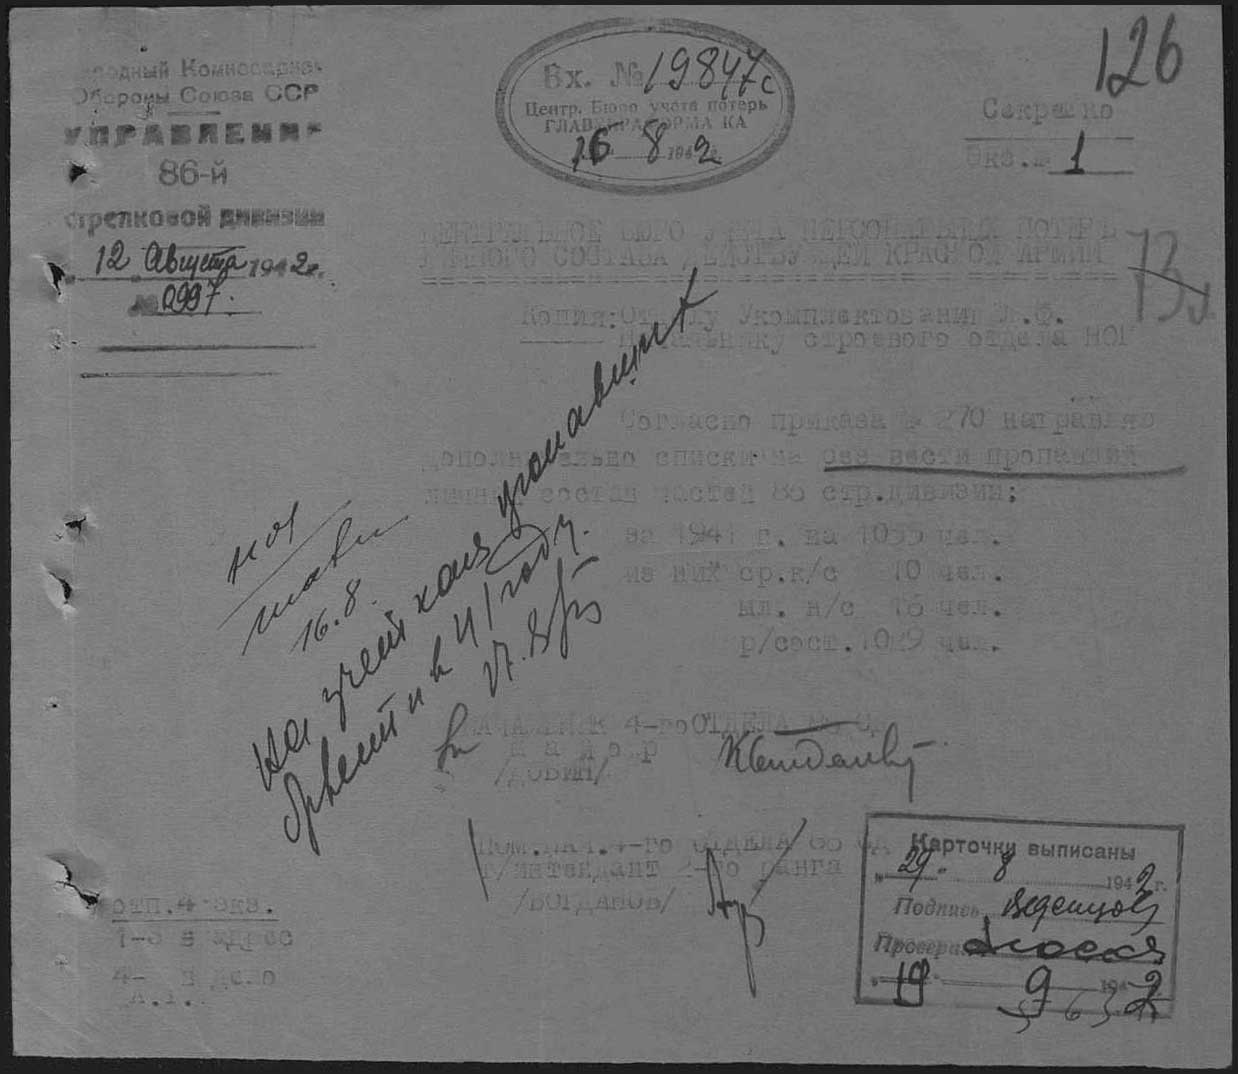 Народный Комиссариат
Обороны Союза ССР
УПРАВЛЕНИЕ
86-й
стрелковой дивизии
12 Августа 1942 г.
№ 0997.
Вх. № 19847с
Центр. Бюро учета потерь
ГЛАВУПРАФОРМА КА
16 8 1942 г.
126
Секретно
Экз.№ 1
ЦЕНТРАЛЬНОЕ БЮРО УЧЕТА ПЕРСОНАЛЬНЫХ ПОТЕРЬ
ЛИЧНОГО СОСТАВА ДЕЙСТВУЮЩЕЙ КРАСНОЙ АРМИИ
73
Копия: Отделу Укомплектования Л.Ф.
Начальнику строевого отдела НОГ
Согласно приказа № 270 направляю
дополнительно списки на без вести пропавший
личный состав частей 86 стр.дивизии:
за 1941 г. на 1055 чел.
из них ср.к/с 10 чел.
мл. н/с 16 чел.
р/сост. 1029 чел.
16.8.
в 41 году.
17.8
НАЧАЛЬНИК 4-го ОТДЕЛА 86 СД
майор
/ДОБИН/
ПОМ.НАЧ.4-го ОТДЕЛА 86 СД
т/интендант 2-го ранга
/БОГДАНОВ/
отп. 4 экз.
1-3 в адрес
4- в дело
Карточки выписаны
29 8 1942 г.
Подпись
Проверил
19 9 1942